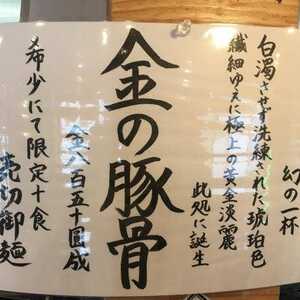 幻の一杯
白濁させず洗練された琥珀色
繊細ゆえに極上の黄金淡麗
此処に誕生
金の豚骨
金八百五十圓成
希少にて限定十食
売切御麺